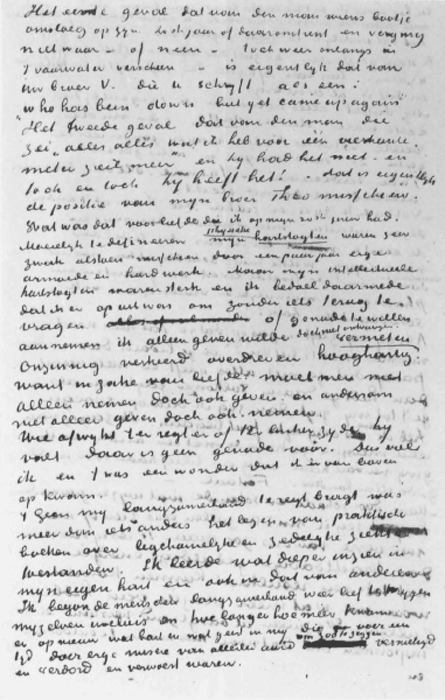 Het eerste geval dat van den man wiens bootje
omsloeg op zijn 20ste jaar of daaromtrent en verging
niet waar – of neen – toch weer onlangs in
't vaarwater verscheen – is eigentlyk dat van
uw broer V. die u schryft als een:
"who has been down but yet came up again"
Het tweede geval dat van den man die
zei "alles alles wat ik heb voor één vierkante
meter zeil meer" en hy had het niet en
toch en toch hy heeft het! – dat is eigentlyk
de positie van myn broer Theo misschien.
Wat was dat voor liefde die ik op myn 20ste jaar had.
Moeielyk te definieeren physieke
myn hartstogten waren zeer
zwak alstoen misschien door een paar jaar erge
armoede en hard werk. Maar myn intellectueele
hartstogten waren sterk en ik bedoel daarmede
dat ik er op uit was om zonder iets terug te
vragen of genade te willen
aannemen ik alleen geven wilde doch niet ontvangen
Onzinnig verkeerd overdreven hooghartig vermetel
want in zake van liefde moet men niet
alleen nemen doch ook geven en andersom
niet alleen geven doch ook nemen.
Wie afwykt ter regter of ter linker zyde hy
valt daar is geen genade voor. Dus viel
ik en 't was een wonder dat ik er van boven
op kwam.
't Geen my langzamerhand te regt bragt was
meer dan iets anders het lezen van praktische
boeken over ligchamelyke en zedelyke ziekte
toestanden. Ik leerde wat dieper inzien in
myn eigen hart en ook in dat van anderen
Ik begon de menschen langzamerhand weer lief te krygen
myzelven incluis en hoe langer hoe meer kwam
er op nieuw wat hart en wat geest in my die voor een
tyd door erge misère van allerlei aard om zoo te zeggen vernietigd
en verdord en verwoest waren.